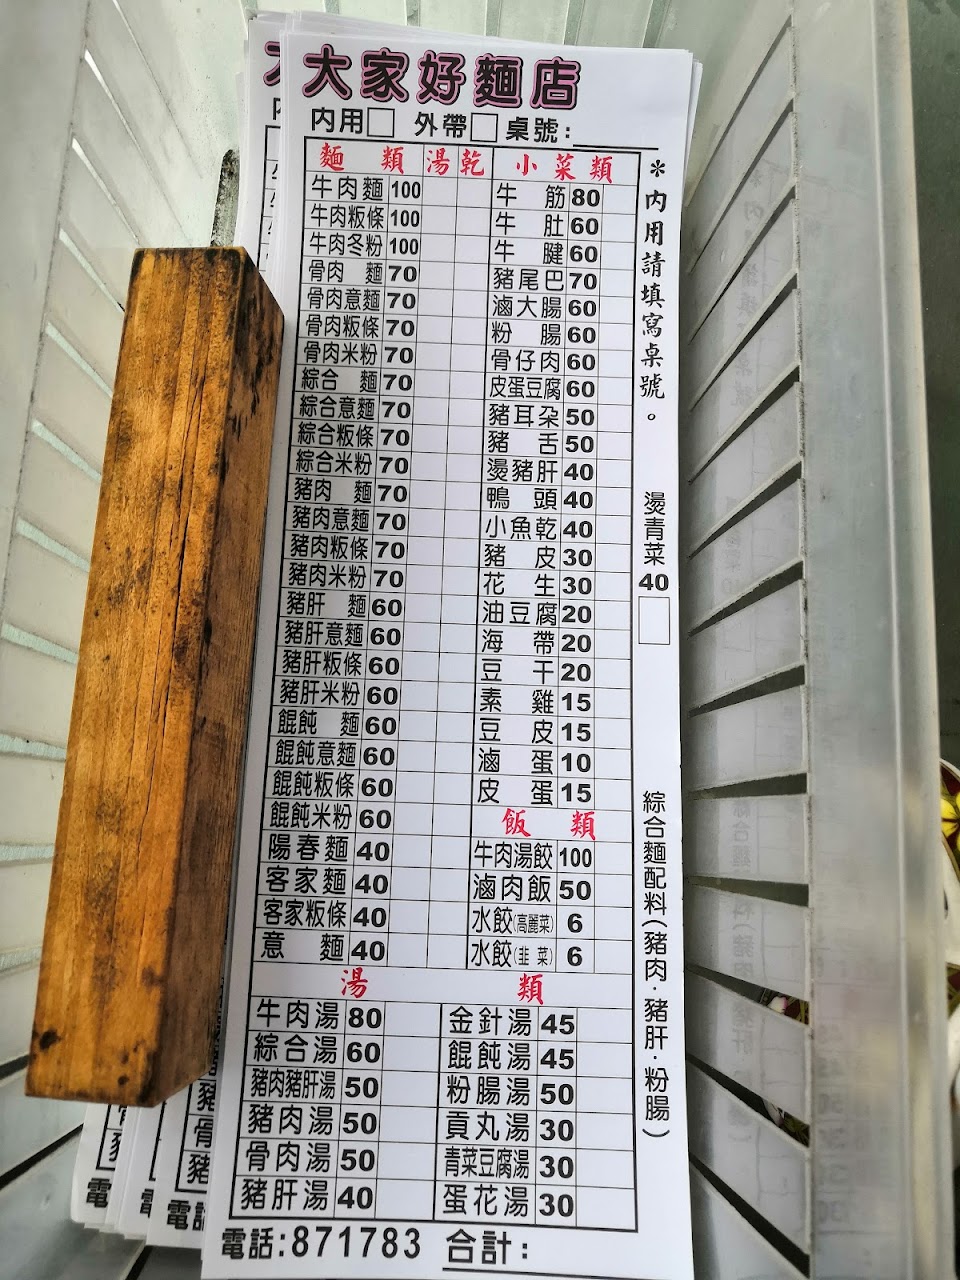 大家好麵店
內用□ 外帶□ 桌號:
麵類 湯 乾
牛肉麵 100
牛肉粄條 100
牛肉冬粉 100
骨肉麵 70
骨肉意麵 70
骨肉粄條 70
骨肉米粉 70
綜合麵 70
綜合意麵 70
綜合粄條 70
綜合米粉 70
豬肉麵 70
豬肉意麵 70
豬肉粄條 70
豬肉米粉 70
豬肝麵 60
豬肝意麵 60
豬肝粄條 60
豬肝米粉 60
餛飩麵 60
餛飩意麵 60
餛飩粄條 60
餛飩米粉 60
陽春麵 40
客家麵 40
客家粄條 40
意麵 40
小菜類
牛筋 80
牛肚 60
牛腱 60
豬尾巴 70
滷大腸 60
粉腸 60
骨仔肉 60
皮蛋豆腐 60
豬耳朵 50
豬舌 50
燙豬肝 40
鴨頭 40
小魚乾 40
豬皮 30
花生 30
油豆腐 20
海帶 20
豆干 20
素雞 15
豆皮 15
滷蛋 10
皮蛋 15
飯類
牛肉湯餃 100
滷肉飯 50
水餃(高麗菜) 6
水餃(韭菜) 6
湯類
牛肉湯 80
綜合湯 60
豬肉豬肝湯 50
豬肉湯 50
骨肉湯 50
豬肝湯 40
金針湯 45
餛飩湯 45
粉腸湯 50
貢丸湯 30
青菜豆腐湯 30
蛋花湯 30
＊內用請填寫桌號。
燙青菜 40
綜合麵配料(豬肉·豬肝·粉腸)
電話:871783 合計: